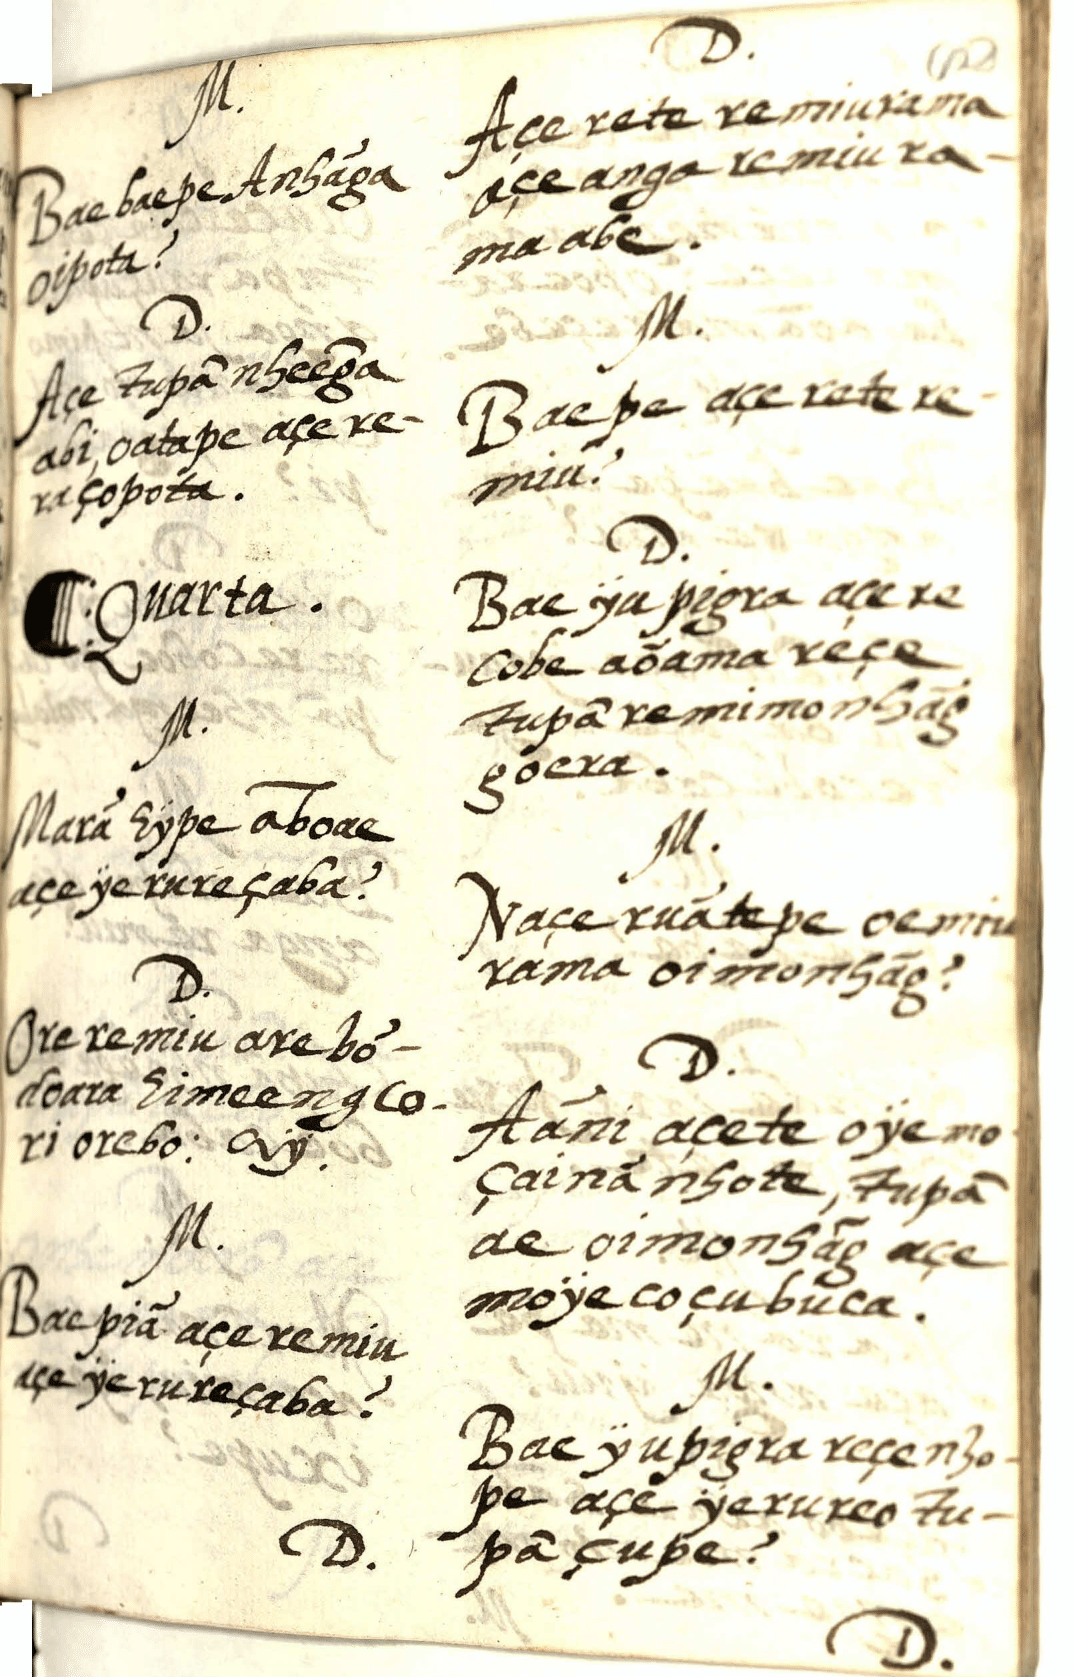 M.
Bae baepe Anhãga
oipota?
D.
Açe tupã nheẽga
abi, oatape açe re-
raçopota.
Quarta.
M.
Marã Eỹpe aboae
açe ÿerureçaba?
D.
Ore remiu are bõ-
doara Eimeeng co-
ri orebo:
M.
Bae piã açe remiu
açe ÿerureçaba?
D.
D.
Açe rete remiurama
açe anga remiu ra-
ma abe.
M.
Bae pe açe rete re-
miu?
D.
Bae ÿupigra açe re
cobe aõama reçe
tupã remimonhãg
goera.
M.
Naçe ruã tepe oemiu
rama oimonhãg?
D.
Aãni açete oÿemo
çainã nhote, tupã
ae oimonhãg açe
moÿecoçubuca.
M.
Bae ÿupigra reçe nho-
pe açe ÿerureo tu-
pã çupe?
D.